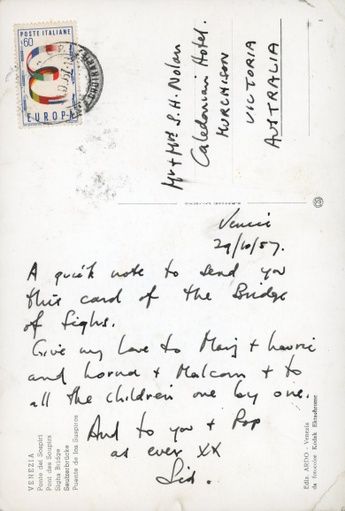 POSTE ITALIANE
£60
EUROPA
Mr + Mrs S. H. Nolan
Caledonian Hotel.
MURCHISON
VICTORIA
AUSTRALIA
Venice
29/10/57.
A quick note to send you
this card of the Bridge
of Sighs.
Give my love to Marj + Lawrie
and Lorna + Malcom + to
all the children one by one.
And to you + Pop
as ever XX
Sid.
VENEZIA
Ponte dei Sospiri
Pont des Soupirs
Sighs Bridge
Seufzerbrücke
Puente de los Suspiros
Ediz. ARDO - Venezia
da fotocolor Kodak Ektachrome